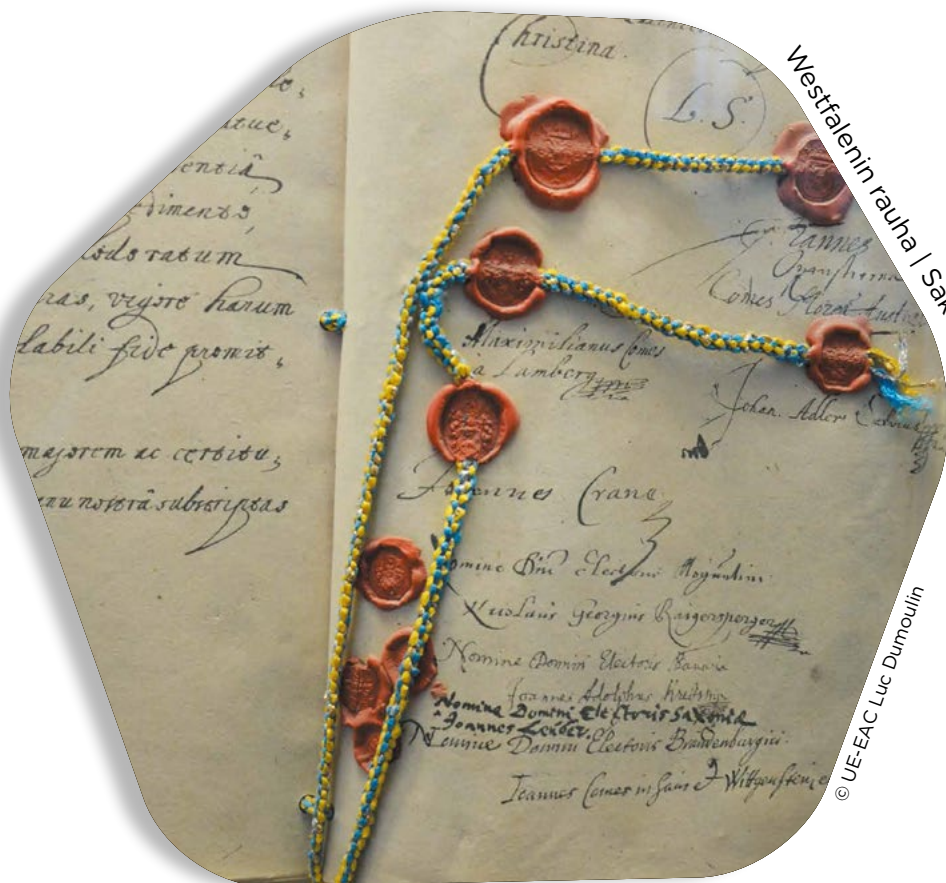 entiâ
dimento,
lodo ratum
nas, vigore harum
labili fide promit,
majorem ac certitu,
anu nostrâ subscriptas
Christina.
L. S.
Johannes
Comes
Maximilianus Comes
a Lamberg
Johan. Adler
Joannes Crane
Nomine Dni Electoris Moguntini
Nicolaus Georgius Raigersperger
Nomine Domini Electoris Bavariæ
Joannes Adolphus
Nomine Domini Electoris Saxoniæ
Joannes Leuber.
Nomine Domini Electoris Brandenburgici.
Joannes Comes in Sain et Wittgenstein
Westfalenin rauha | Sak
© UE-EAC Luc Dumoulin